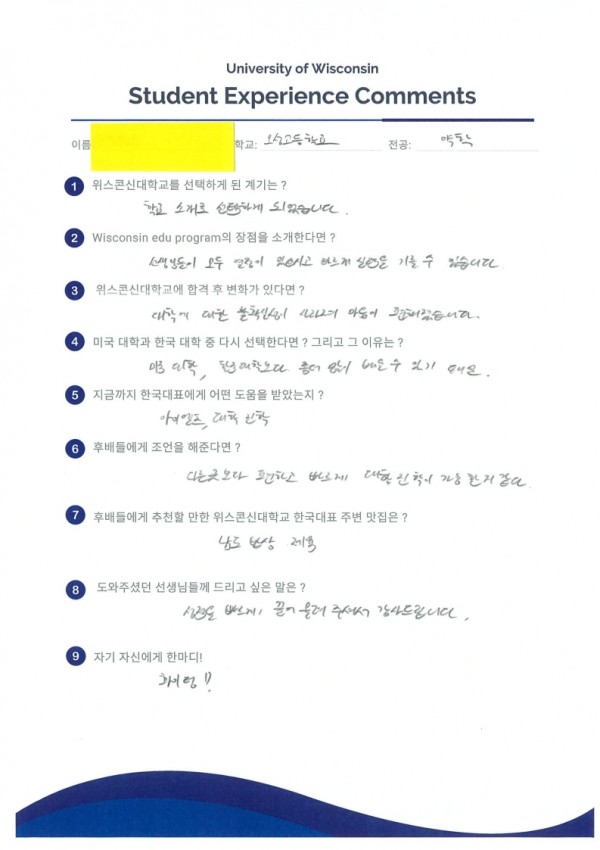 University of Wisconsin
Student Experience Comments
이름 학교: 오성고등학교 전공: 약학
1 위스콘신대학교를 선택하게 된 계기는 ?
학교 소개로 선택하게 되었습니다.
2 Wisconsin edu program의 장점을 소개한다면 ?
선생님들이 모두 열정이 있으시고 빠르게 실력을 기를 수 있습니다
3 위스콘신대학교에 합격 후 변화가 있다면 ?
대학에 대한 불확실성이 사라져 마음이 편해졌습니다.
4 미국 대학과 한국 대학 중 다시 선택한다면 ? 그리고 그 이유는 ?
미국 대학, 한국대학보다 좀더 많이 배울 수 있기 때문.
5 지금까지 한국대표에게 어떤 도움을 받았는지 ?
아이엘츠, 대학 진학
6 후배들에게 조언을 해준다면 ?
다른곳보다 편하고 빠르게 대학 진학이 가능한거 같다.
7 후배들에게 추천할 만한 위스콘신대학교 한국대표 주변 맛집은 ?
남도 밥상 제육
8 도와주셨던 선생님들께 드리고 싶은 말은 ?
실력을 빠르게 끌어 올려 주셔서 감사드립니다.
9 자기 자신에게 한마디!
화이팅!!